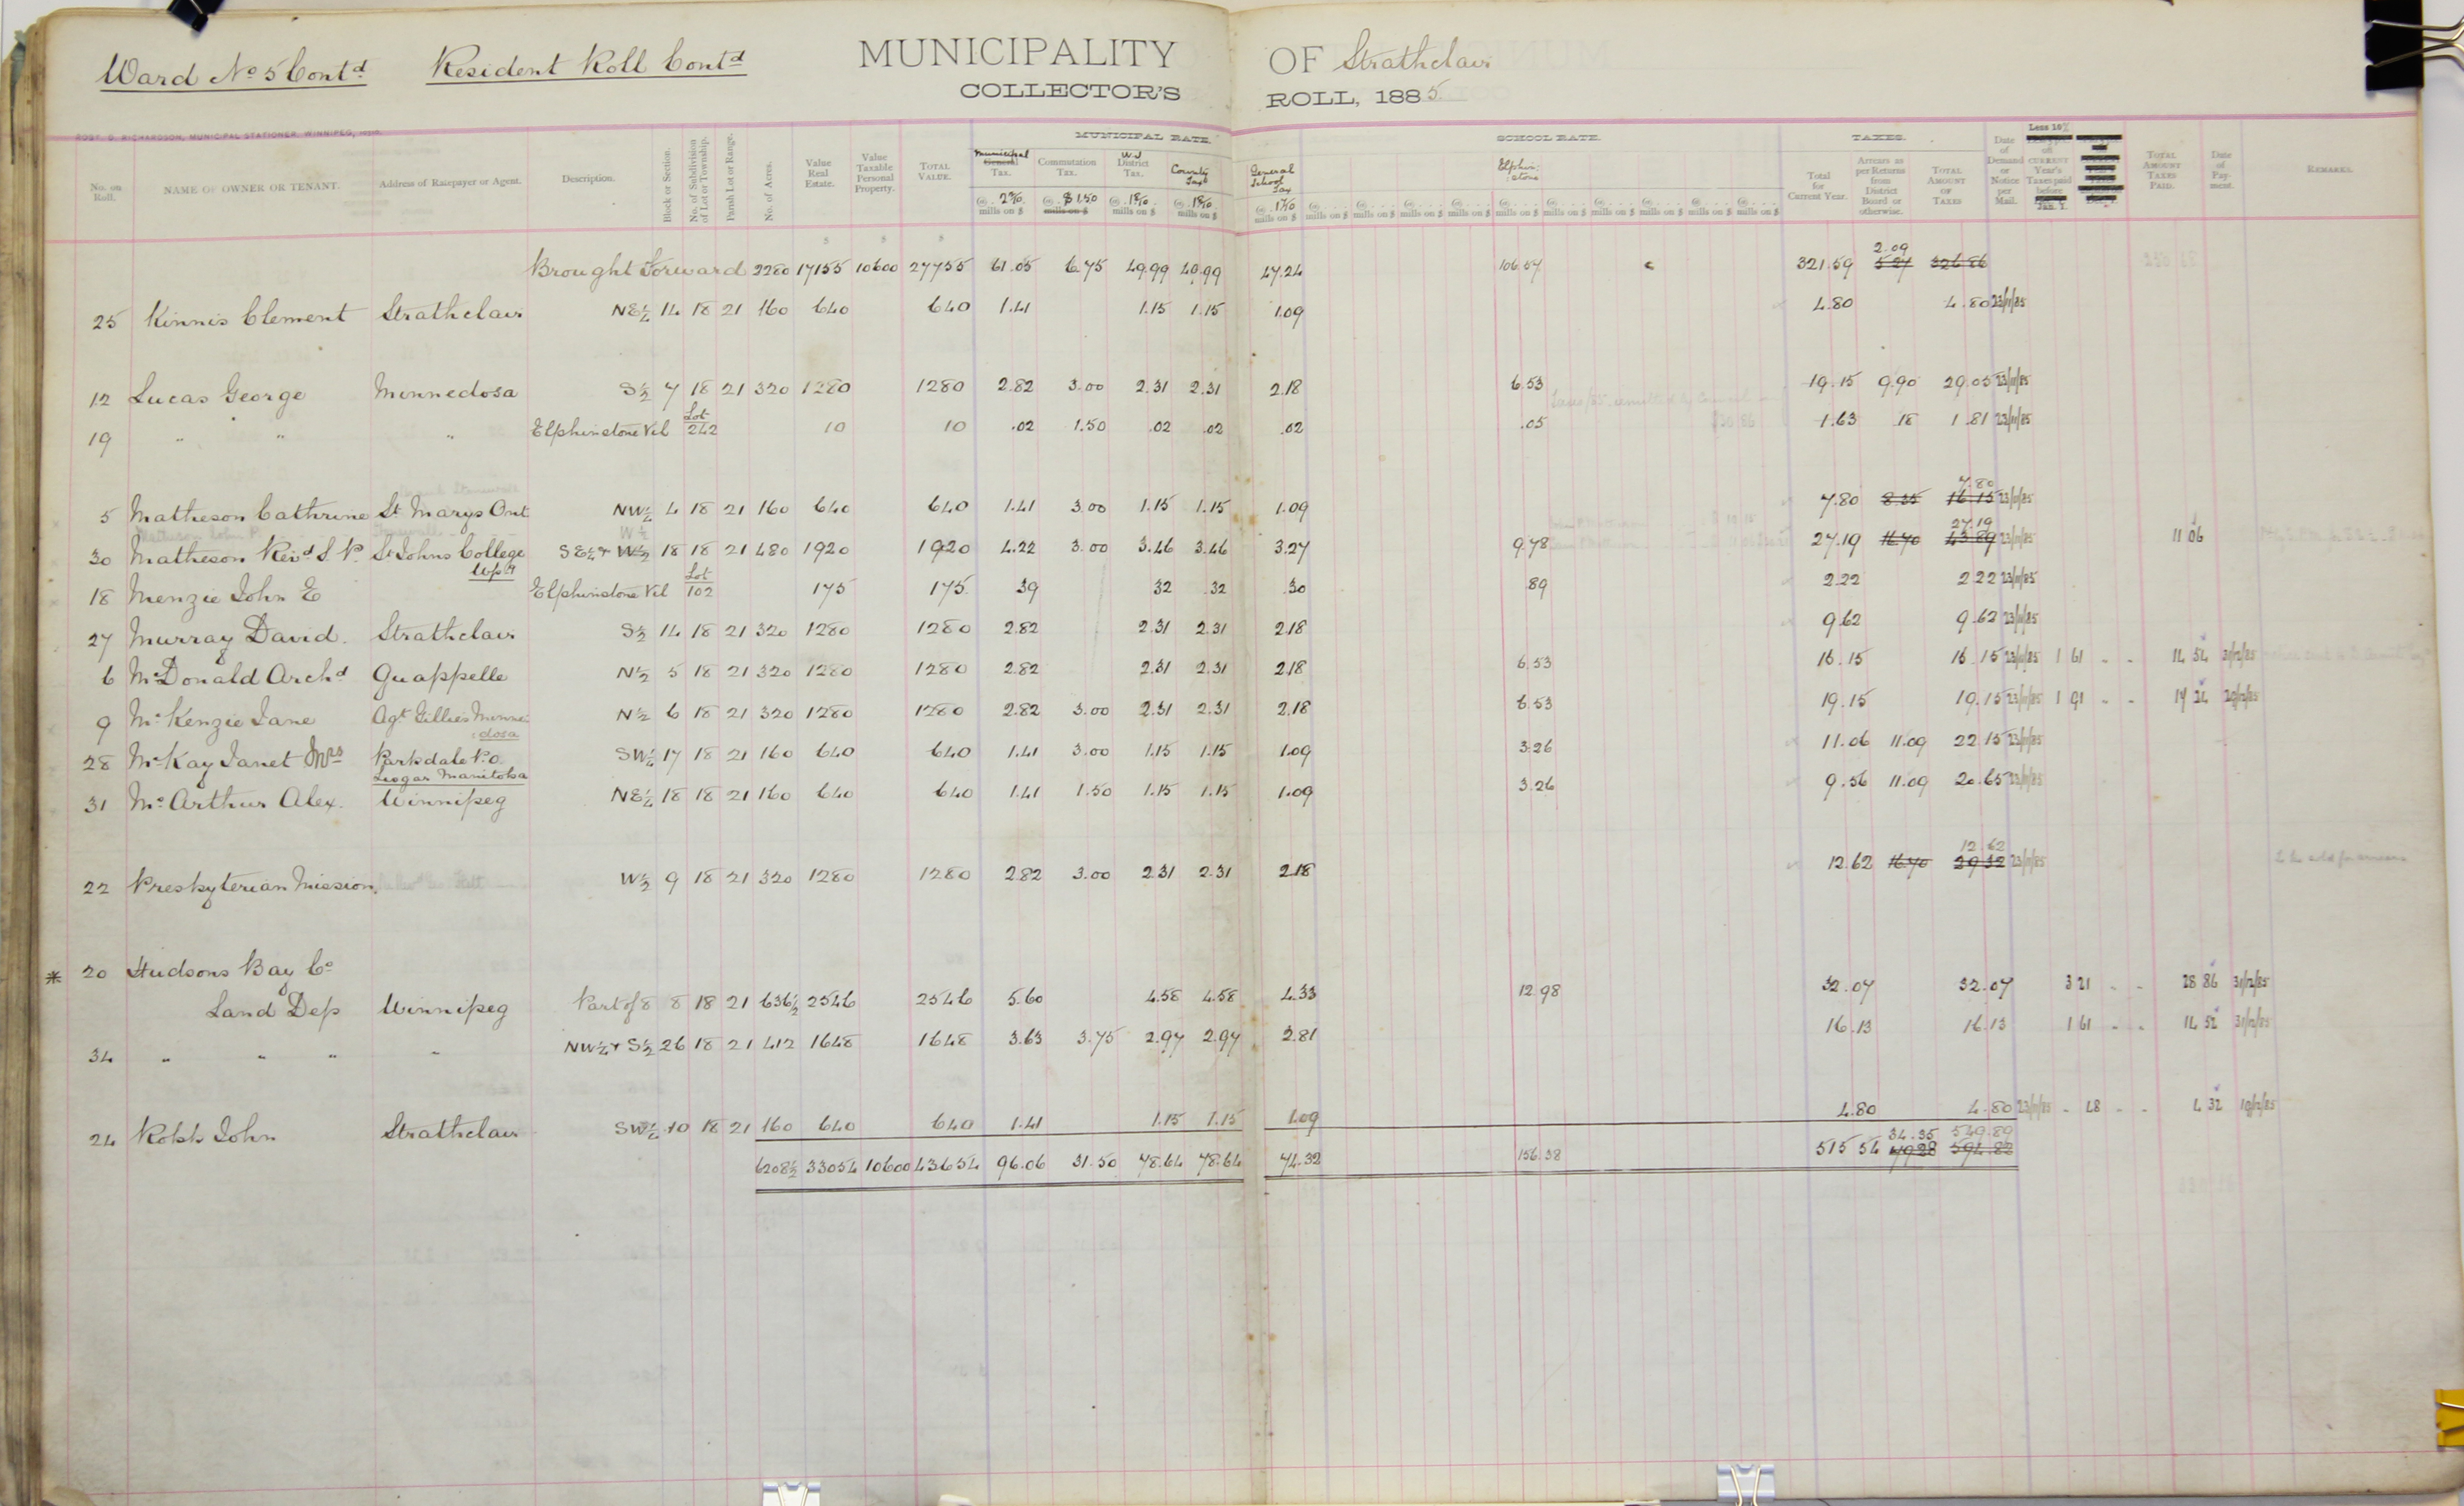 Ward No 5 Contd Resident Roll Contd MUNICIPALITY OF Strathclair
COLLECTOR'S ROLL, 1885
ROBT. D. RICHARDSON, MUNICIPAL STATIONER, WINNIPEG,
MUNICIPAL RATE. SCHOOL RATE. TAXES.
No. on Roll. NAME OF OWNER OR TENANT. Address of Ratepayer or Agent. Description. Block or Section. No. of Subdivision of Lot or Township. Parish Lot or Range. No. of Acres. Value Real Estate. Value Taxable Personal Property. TOTAL VALUE. Municipal General Tax. Commutation Tax. W.J District Tax. County Tax General School Tax Elphin:stone Total for Current Year. Arrears as per Returns from District Board or otherwise. TOTAL AMOUNT OF TAXES Date of Demand or Notice per Mail. Less 10% off CURRENT Year's Taxes paid before Jan. 1. TOTAL AMOUNT TAXES PAID. Date of Payment. REMARKS.
@ 2 2/10 mills on $ @ $1.50 mills on $ @ 1 8/10 mills on $ @ 1 8/10 mills on $ @ 1 7/10 mills on $ @ mills on $ @ mills on $ @ mills on $ @ mills on $ @ mills on $ @ mills on $ @ mills on $ @ mills on $ @ mills on $ @ mills on $
2.09
Brought Forward 2280 17155 10600 27755 61.05 6.75 49.99 49.99 47.24 106.57 321.59 5.27 326.86
25 Kinnis Clement Strathclair NE¼ 14 18 21 160 640 640 1.41 1.15 1.15 1.09 4.80 4.80 23/11/85
12 Lucas George Minnedosa S½ 7 18 21 320 1280 1280 2.82 3.00 2.31 2.31 2.18 6.53 19.15 9.90 29.05 23/11/85
19 " " " Elphinstone Vil Lot 242 10 10 .02 1.50 .02 .02 .02 .05 1.63 18 1 81 23/11/85
7.80
5 Matheson Cathrine St Marys Ont NW¼ 4 18 21 160 640 640 1.41 3.00 1.15 1.15 1.09 7.80 8.35 16.15 23/11/85
W½
27.19
30 Matheson Revd S. P. St Johns College Wpg SE¼ + W½ 18 18 21 480 1920 1920 4.22 3.00 3.46 3.46 3.27 9.78 27.19 16.70 43.89 23/11/85 11 06
18 Menzie John E Elphinstone Vil Lot 102 175 175 39 32 .32 .30 89 2.22 2 22 23/11/85
27 Murray David. Strathclair S½ 14 18 21 320 1280 1280 2.82 2.31 2.31 2.18 9.62 9.62 23/11/85
6 McDonald Archd Quappelle N½ 5 18 21 320 1280 1280 2.82 2.31 2.31 2.18 6.53 16.15 16.15 23/11/85 1 61 " " 14 54 31/12/85
9 McKenzie Jane Agt Gillies Minne:dosa N½ 6 18 21 320 1280 1280 2.82 3.00 2.31 2.31 2.18 6.53 19.15 19.15 23/11/85 1 91 " " 17 24 29/12/85
28 McKay Janet Mrs Parksdale P.O. Lisgar Manitoba SW¼ 17 18 21 160 640 640 1.41 3.00 1.15 1.15 1.09 3.26 11.06 11.09 22.15 23/11/85
31 McArthur Alex. Winnipeg NE¼ 18 18 21 160 640 640 1.41 1.50 1.15 1.15 1.09 3.26 9.56 11.09 20.65 23/11/85
12.62
22 Presbyterian Mission. W½ 9 18 21 320 1280 1280 2.82 3.00 2.31 2.31 2.18 12.62 16.70 29.32 23/11/85 To be sold for arrears
* 20 Hudsons Bay Co
Land Dep Winnipeg Part of 8 8 18 21 636½ 2546 2546 5.60 4.58 4.58 4.33 12.98 32.07 32.07 3 21 " " 28 86 31/12/85
34 " " " " NW¼ + S½ 26 18 21 412 1648 1648 3.63 3.75 2.97 2.97 2.81 16.13 16.13 1 61 " " 14 52 31/12/85
24 Robb John Strathclair SW¼ 10 18 21 160 640 640 1.41 1.15 1.15 1.09 4.80 4.80 23/11/85 " 48 " " 4 32 19/12/85
34.35 549.89
6208½ 33054 10600 43654 96.06 31.50 78.64 78.64 74.32 156.38 515 54 79.28 594.82